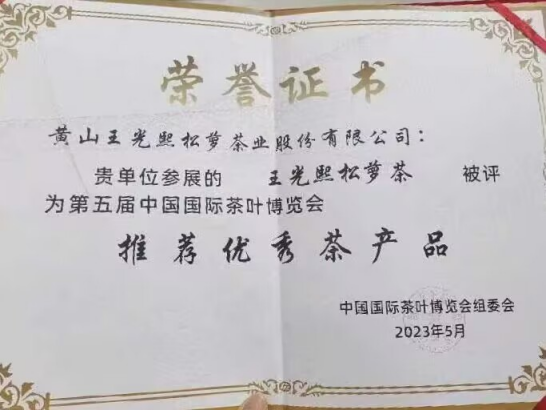 荣誉证书
黄山王光熙松萝茶业股份有限公司：
贵单位参展的 王光熙松萝茶 被评
为第五届中国国际茶叶博览会
推荐优秀茶产品
中国国际茶叶博览会组委会
2023年5月